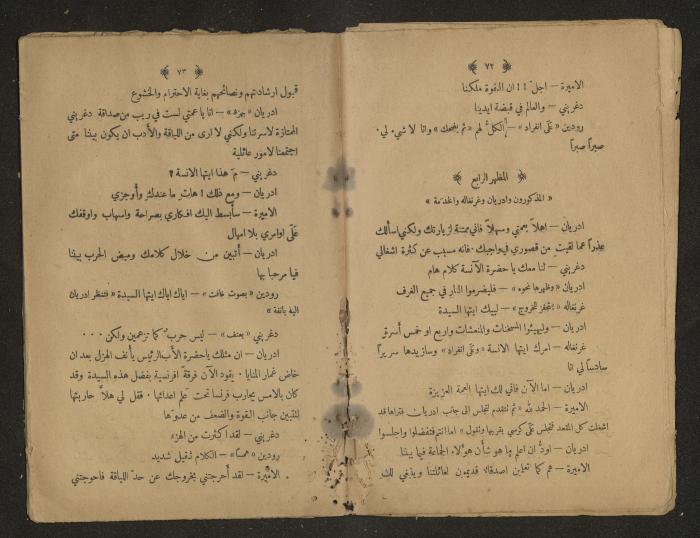 ﴿ ٧٢ ﴾
الاميرة — اجل !! ان القوة ملكنا
دغريني — والعالم في قبضة ايدينا
رودين «على انفراد» — الكل لهم «ثم يضحك» وانا لا شيء لي.
صبراً صبراً
﴿ المظهر الرابع ﴾
« المذكورون وادريان وغرنغاله والخدمة »
ادريان — اهلاً بعمتي وسهلاً فاني ممتنة لزيارتك ولكني اسألك
عذراً عما لقيتِ من قصوري في واجبك. فانه مسبب عن كثرة اشغالي
دغريني — لنا معك يا حضرة الآنسة كلام هام
ادريان «وظهرها نحوه» — فليضرموا النار في جميع الغرف
غرنغاله «يتحفز للخروج» — لبيك ايتها السيدة
ادريان — وليهيئوا المسخنات والمنعشات واربع او خمس أسرة
غرنغاله — امرك ايتها الانسة «وعلى انفراد» وسازيدها سريراً
سادساً لي انا
ادريان — اما الآن فاني لك ايتها العمة العزيزة
الاميرة — الحمد لله «ثم تتقدم لتجلس الى جانب ادريان فتراها قد
اشغلت كل المقعد فتجلس على كرسي بقربها وتقول» اما انتم فتفضلوا واجلسوا
ادريان — اودُّ ان اعلم ما هو شأن هؤلاء الجماعة فيما بيننا
الاميرة — هم كما تعلمين اصدقاء قديمون لعائلتنا وينبغي لك
﴿ ٧٣ ﴾
قبول ارشاداتهم ونصائحهم بغاية الاحترام والخشوع
ادريان «بهزء» — انا يا عمتي لست في ريب من صداقة دغريني
الممتازة لاسرتنا ولكني لا ارى من اللياقة والأدب ان يكون بيننا متى
اجتمعنا لامور عائلية
دغريني — مَ هذا ايتها الانسة ؟
ادريان — ومع ذلك ! هاتِ ما عندكِ وأوجزي
الاميرة — سأبسط اليك افكاري بصراحة واسهاب واوقفك
على اوامري بلا امهال
ادريان — أتبين من خلال كلامك وميض الحرب بيننا
فيا مرحبا بها
رودين «بصوت خافت» — اياك اياك ايتها السيدة «فتنظر ادريان
اليه بانفة»
دغريني «بعنف» — ليس حرب كما تزعمين ولكن . . .
ادريان — ان مثلك يا حضرة الأب الرئيس يأنف الهزل بعد ان
خاض غمار المنايا. يقود الآن فرقة افرنسية بفضل هذه السيدة وقد
كان بالامس يحارب فرنسا تحت علم اعدائها. فقل لي هلاَّ حاربتها
لتبين جانب القوة والضعف من عدوها
دغريني — لقد اكثرت من الهزء
رودين «همساً» — الكلام ثقيل شديد
الاميرة — لقد أحرجتني بخروجك عن حدّ اللياقة فاحوجتني